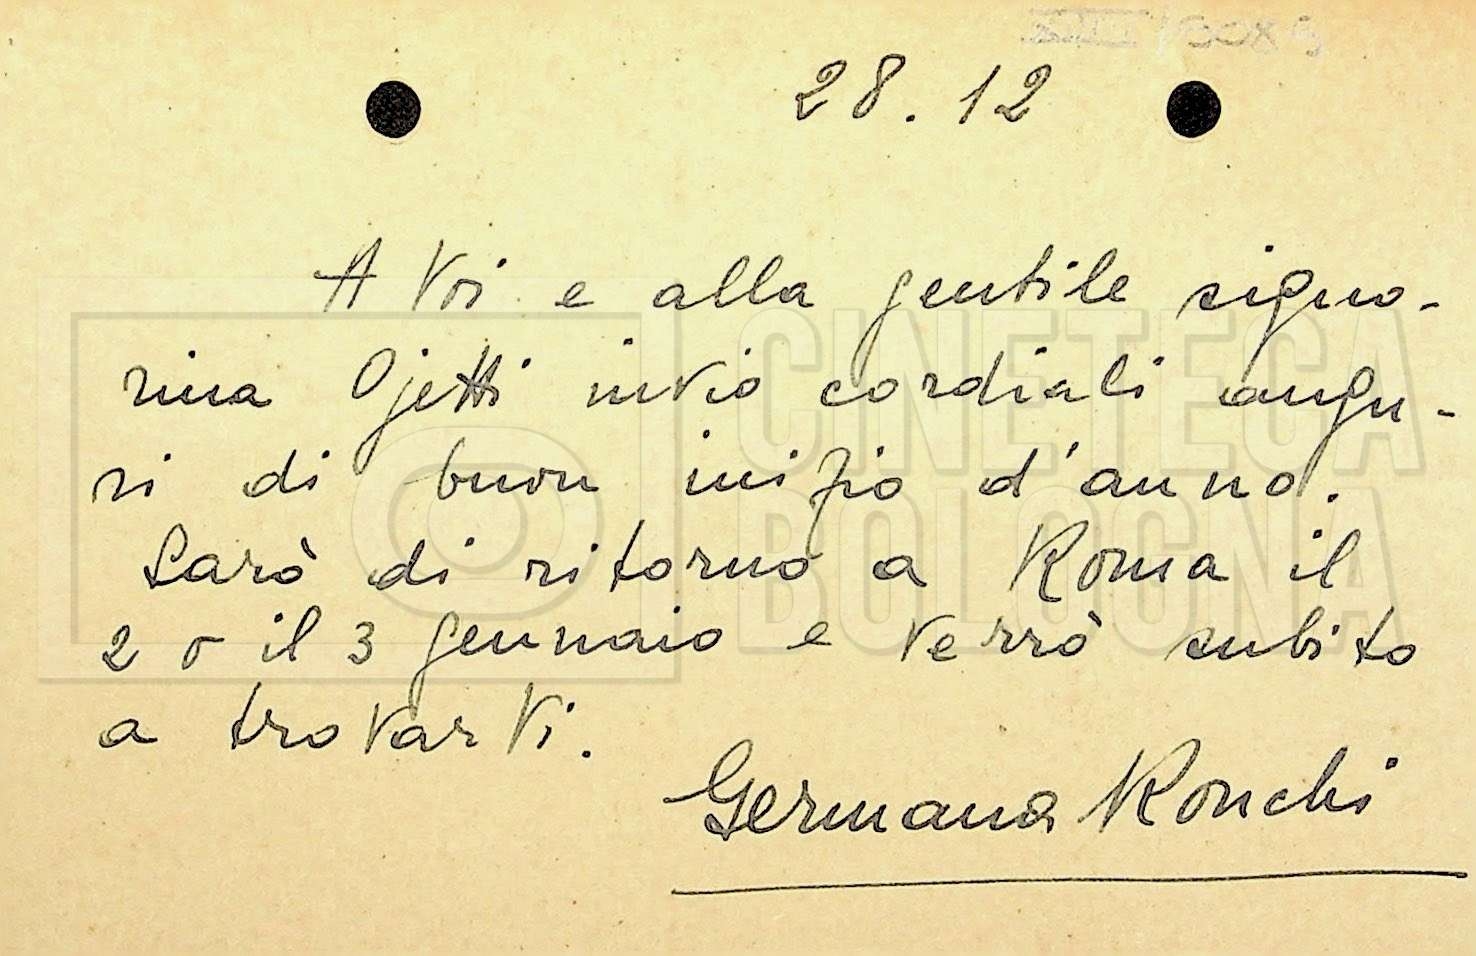 28.12
A Voi e alla gentile signo-
rina Ojetti invio cordiali augu-
ri di buon inizio d'anno.
Sarò di ritorno a Roma il
2 o il 3 gennaio e verrò subito
a trovarVi.
Germana Ronchi
CINETECA
BOLOGNA